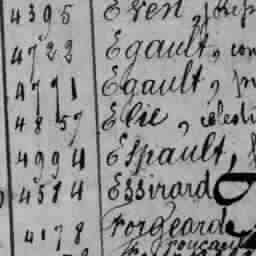 4395 Even,
4722 Egault,
4791 Egault,
4857 Elie,
4994 Espault,
4584 Essirard
4178 Forgearde